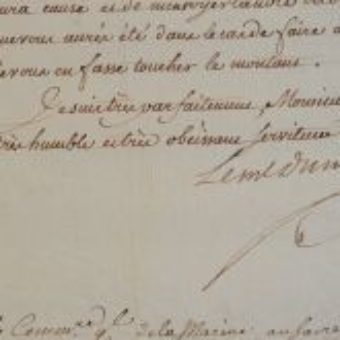 cause et de m'envoyer
que vous aurés été dans le cas de faire a
je vous en fasse toucher le montant.
Je suis très parfaitement, Monsieu
très humble et très obéissant serviteur
Le mal Dum
Commre gl de la Marine au